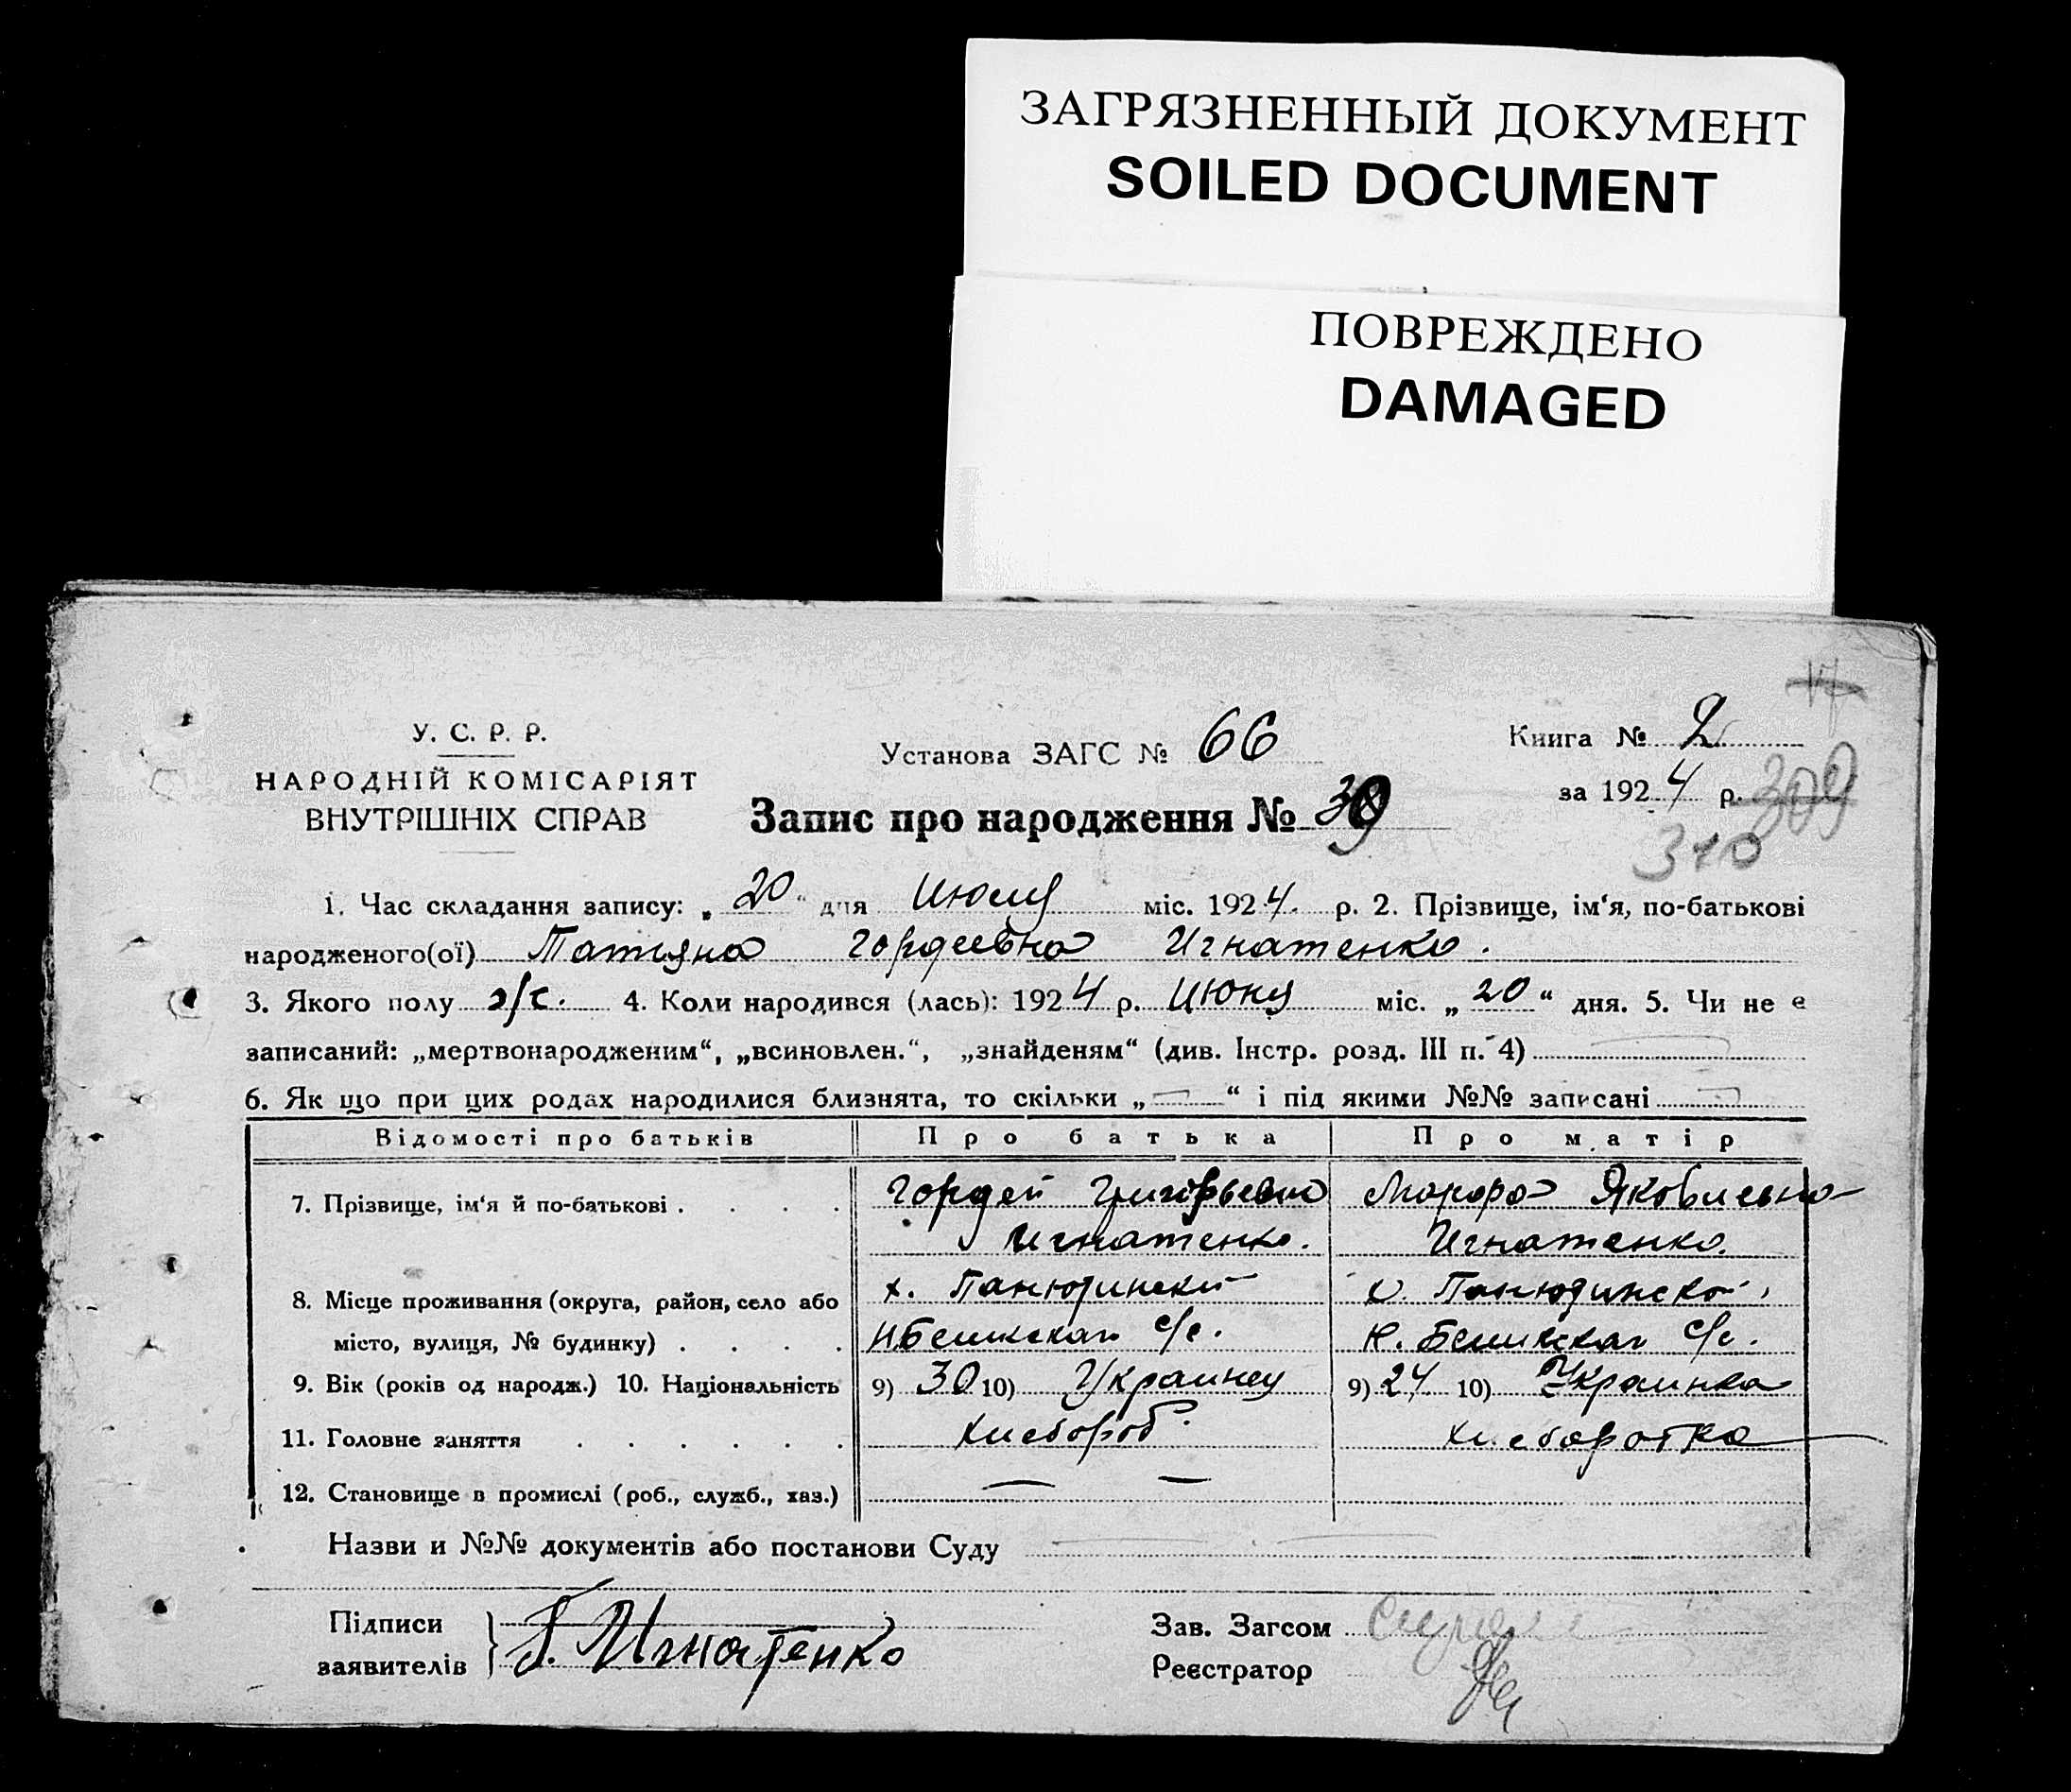 ЗАГРЯЗНЕННЫЙ ДОКУМЕНТ
SOILED DOCUMENT
ПОВРЕЖДЕНО
DAMAGED
У. С. Р. Р.
НАРОДНІЙ КОМІСАРІЯТ
ВНУТРІШНІХ СПРАВ
Установа ЗАГС № 66
Запис про народження № 39
Книга № 2
за 1924 р. 309
310
1. Час складання запису: „20“ дня Июлу міс. 1924. р. 2. Прізвище, ім‘я, по-батькові
народженого(ої) Татяна Гордеевна Игнатенко.
3. Якого полу ж/с. 4. Коли народився (лась): 1924 р. Июну міс. „20“ дня. 5. Чи не є
записаний: „мертвонародженим“, „всиновлен.“, „знайденям“ (див. Інстр. розд. III п. 4)
6. Як що при цих родах народилися близнята, то скільки „ “ і під якими №№ записані
Відомості про батьків Про батька Про матір
7. Прізвище, ім‘я й по-батькові . . . . Гордей Григорьевич Макара Яковлевна
Игнатенко. Игнатенко.
8. Місце проживання (округа, район, село або х. Панютински х. Панютинской
місто, вулиця, № будинку) . . . . с/с. с/с.
9. Вік (років од народж.) 10. Національність 9) 30 10) Украинец 9) 24 10) Украинка
11. Головне заняття . . . . . . Хлебороб Хлеборобка
12. Становище в промислі (роб., служб., хаз.)
Назви и №№ документів або постанови Суду
Підписи
заявителів Г. Игнатенко
Зав. Загсом
Реєстратор